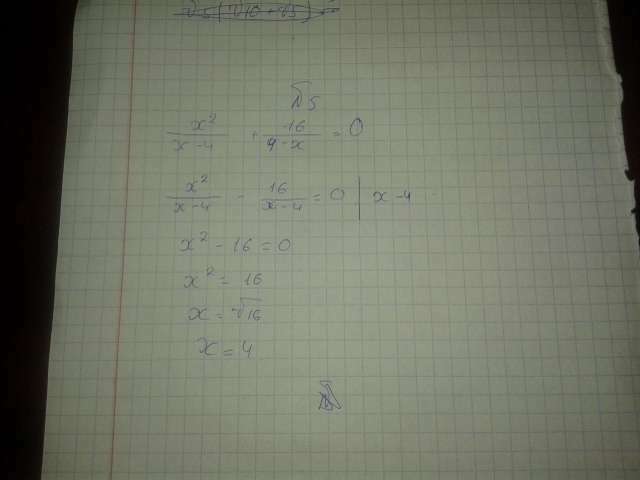 №5
x²/(x-4) + 16/(4-x) = 0
x²/(x-4) - 16/(x-4) = 0 | x-4
x² - 16 = 0
x² = 16
x = √16
x = 4